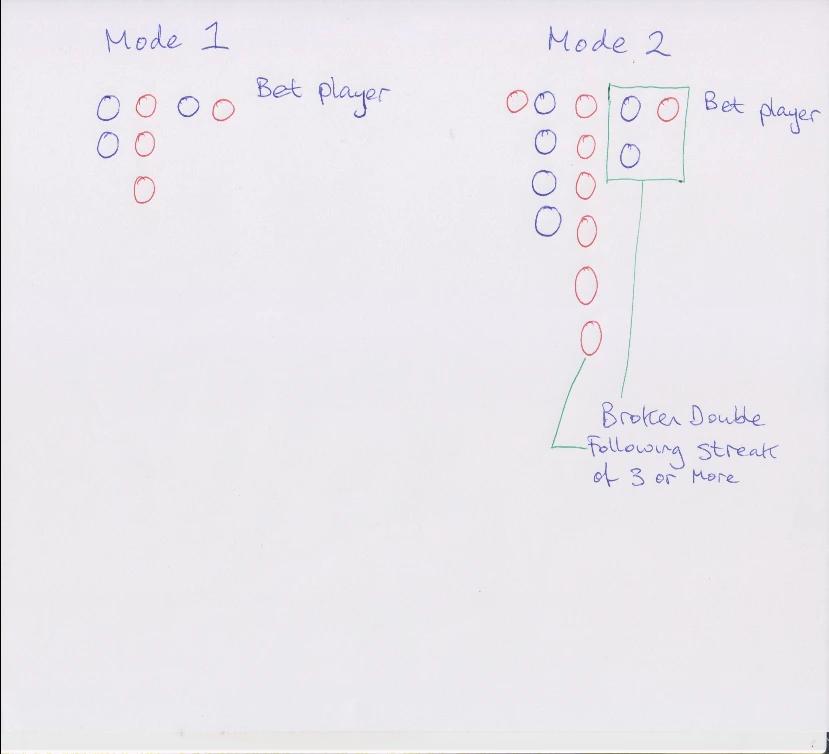 Mode 1
Bet player
Mode 2
Bet player
Broken Double
Following Streak
of 3 or More